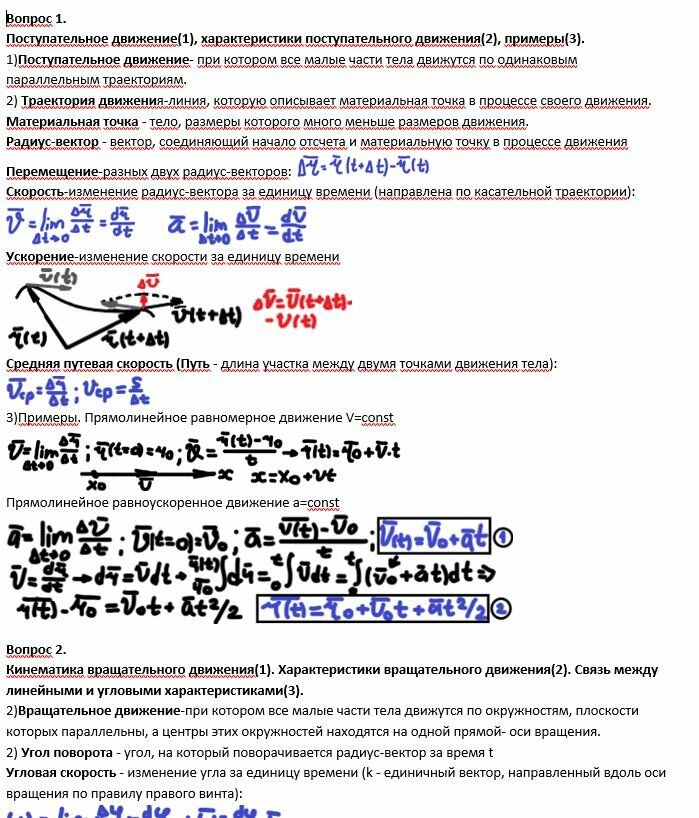 Вопрос 1.
Поступательное движение(1), характеристики поступательного движения(2), примеры(3).
1)Поступательное движение- при котором все малые части тела движутся по одинаковым
параллельным траекториям.
2) Траектория движения-линия, которую описывает материальная точка в процессе своего движения.
Материальная точка - тело, размеры которого много меньше размеров движения.
Радиус-вектор - вектор, соединяющий начало отсчета и материальную точку в процессе движения
Перемещение-разных двух радиус-векторов: Δr̄=r̄(t+Δt)-r̄(t)
Скорость-изменение радиус-вектора за единицу времени (направлена по касательной траектории):
v̄=lim Δt→0 Δr̄/Δt=dr̄/dt ā=lim Δt→0 Δv̄/Δt=dv̄/dt
Ускорение-изменение скорости за единицу времени
v̄(t) Δv̄
v̄(t+Δt) Δv̄=v̄(t+Δt)-
r̄(t) r̄(t+Δt) -v(t)
Средняя путевая скорость (Путь - длина участка между двумя точками движения тела):
v̄ср=Δr̄/Δt; vср=S/Δt
3)Примеры. Прямолинейное равномерное движение V=const
v̄=lim Δt→0 Δr̄/Δt; r̄(t=0)=r0; v̄=(r̄(t)-r0)/t→r̄(t)=r̄0+v̄·t
x0 v̄ x x=x0+vt
Прямолинейное равноускоренное движение a=const
ā=lim Δt→0 Δv̄/Δt; v̄(t=0)=v̄0; ā=(v̄(t)-v̄0)/t; v̄(t)=v̄0+āt 1
v̄=dr̄/dt→dr̄=v̄dt→r̄0∫r̄(t) dr̄=0∫t v̄dt=0∫t(v̄0+āt)dt⇒
r̄(t)-r̄0=v̄0t+āt²/2 r̄(t)=r̄0+v̄0t+āt²/2 2
Вопрос 2.
Кинематика вращательного движения(1). Характеристики вращательного движения(2). Связь между
линейными и угловыми характеристиками(3).
2)Вращательное движение-при котором все малые части тела движутся по окружностям, плоскости
которых параллельны, а центры этих окружностей находятся на одной прямой- оси вращения.
2) Угол поворота - угол, на который поворачивается радиус-вектор за время t
Угловая скорость - изменение угла за единицу времени (k - единичный вектор, направленный вдоль оси
вращения по правилу правого винта):